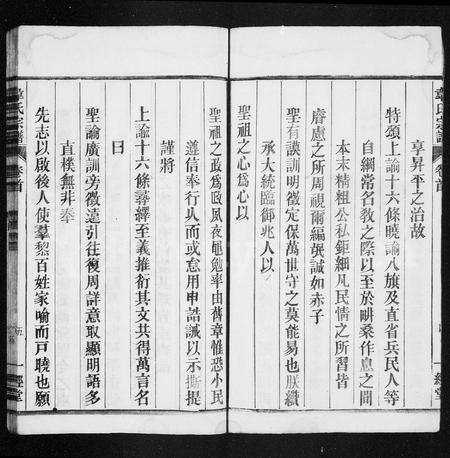 章氏宗譜
卷首
一經堂
享昇平之治故
特頒上諭十六條曉諭八旗及直省兵民人等
自綱常名教之際以至於畊桑作息之間
本末精粗公私鉅細凡民情之所習皆
睿慮之所周視爾編氓誠如赤子
聖有謨訓明徵定保萬世守之莫能易也朕纘
承大統臨御兆人以
聖祖之心為心以
聖祖之政為政夙夜黽勉率由舊章惟恐小民
遵信奉行久而或怠用申誥誡以示提撕
謹將
上諭十六條尋繹至義推衍其文共得萬言名
曰
聖諭廣訓旁徵遠引往復周詳意取顯明語多
直樸無非奉
先志以啟後人使羣黎百姓家喻而戶曉也願
章氏宗譜
卷首
五
一經堂